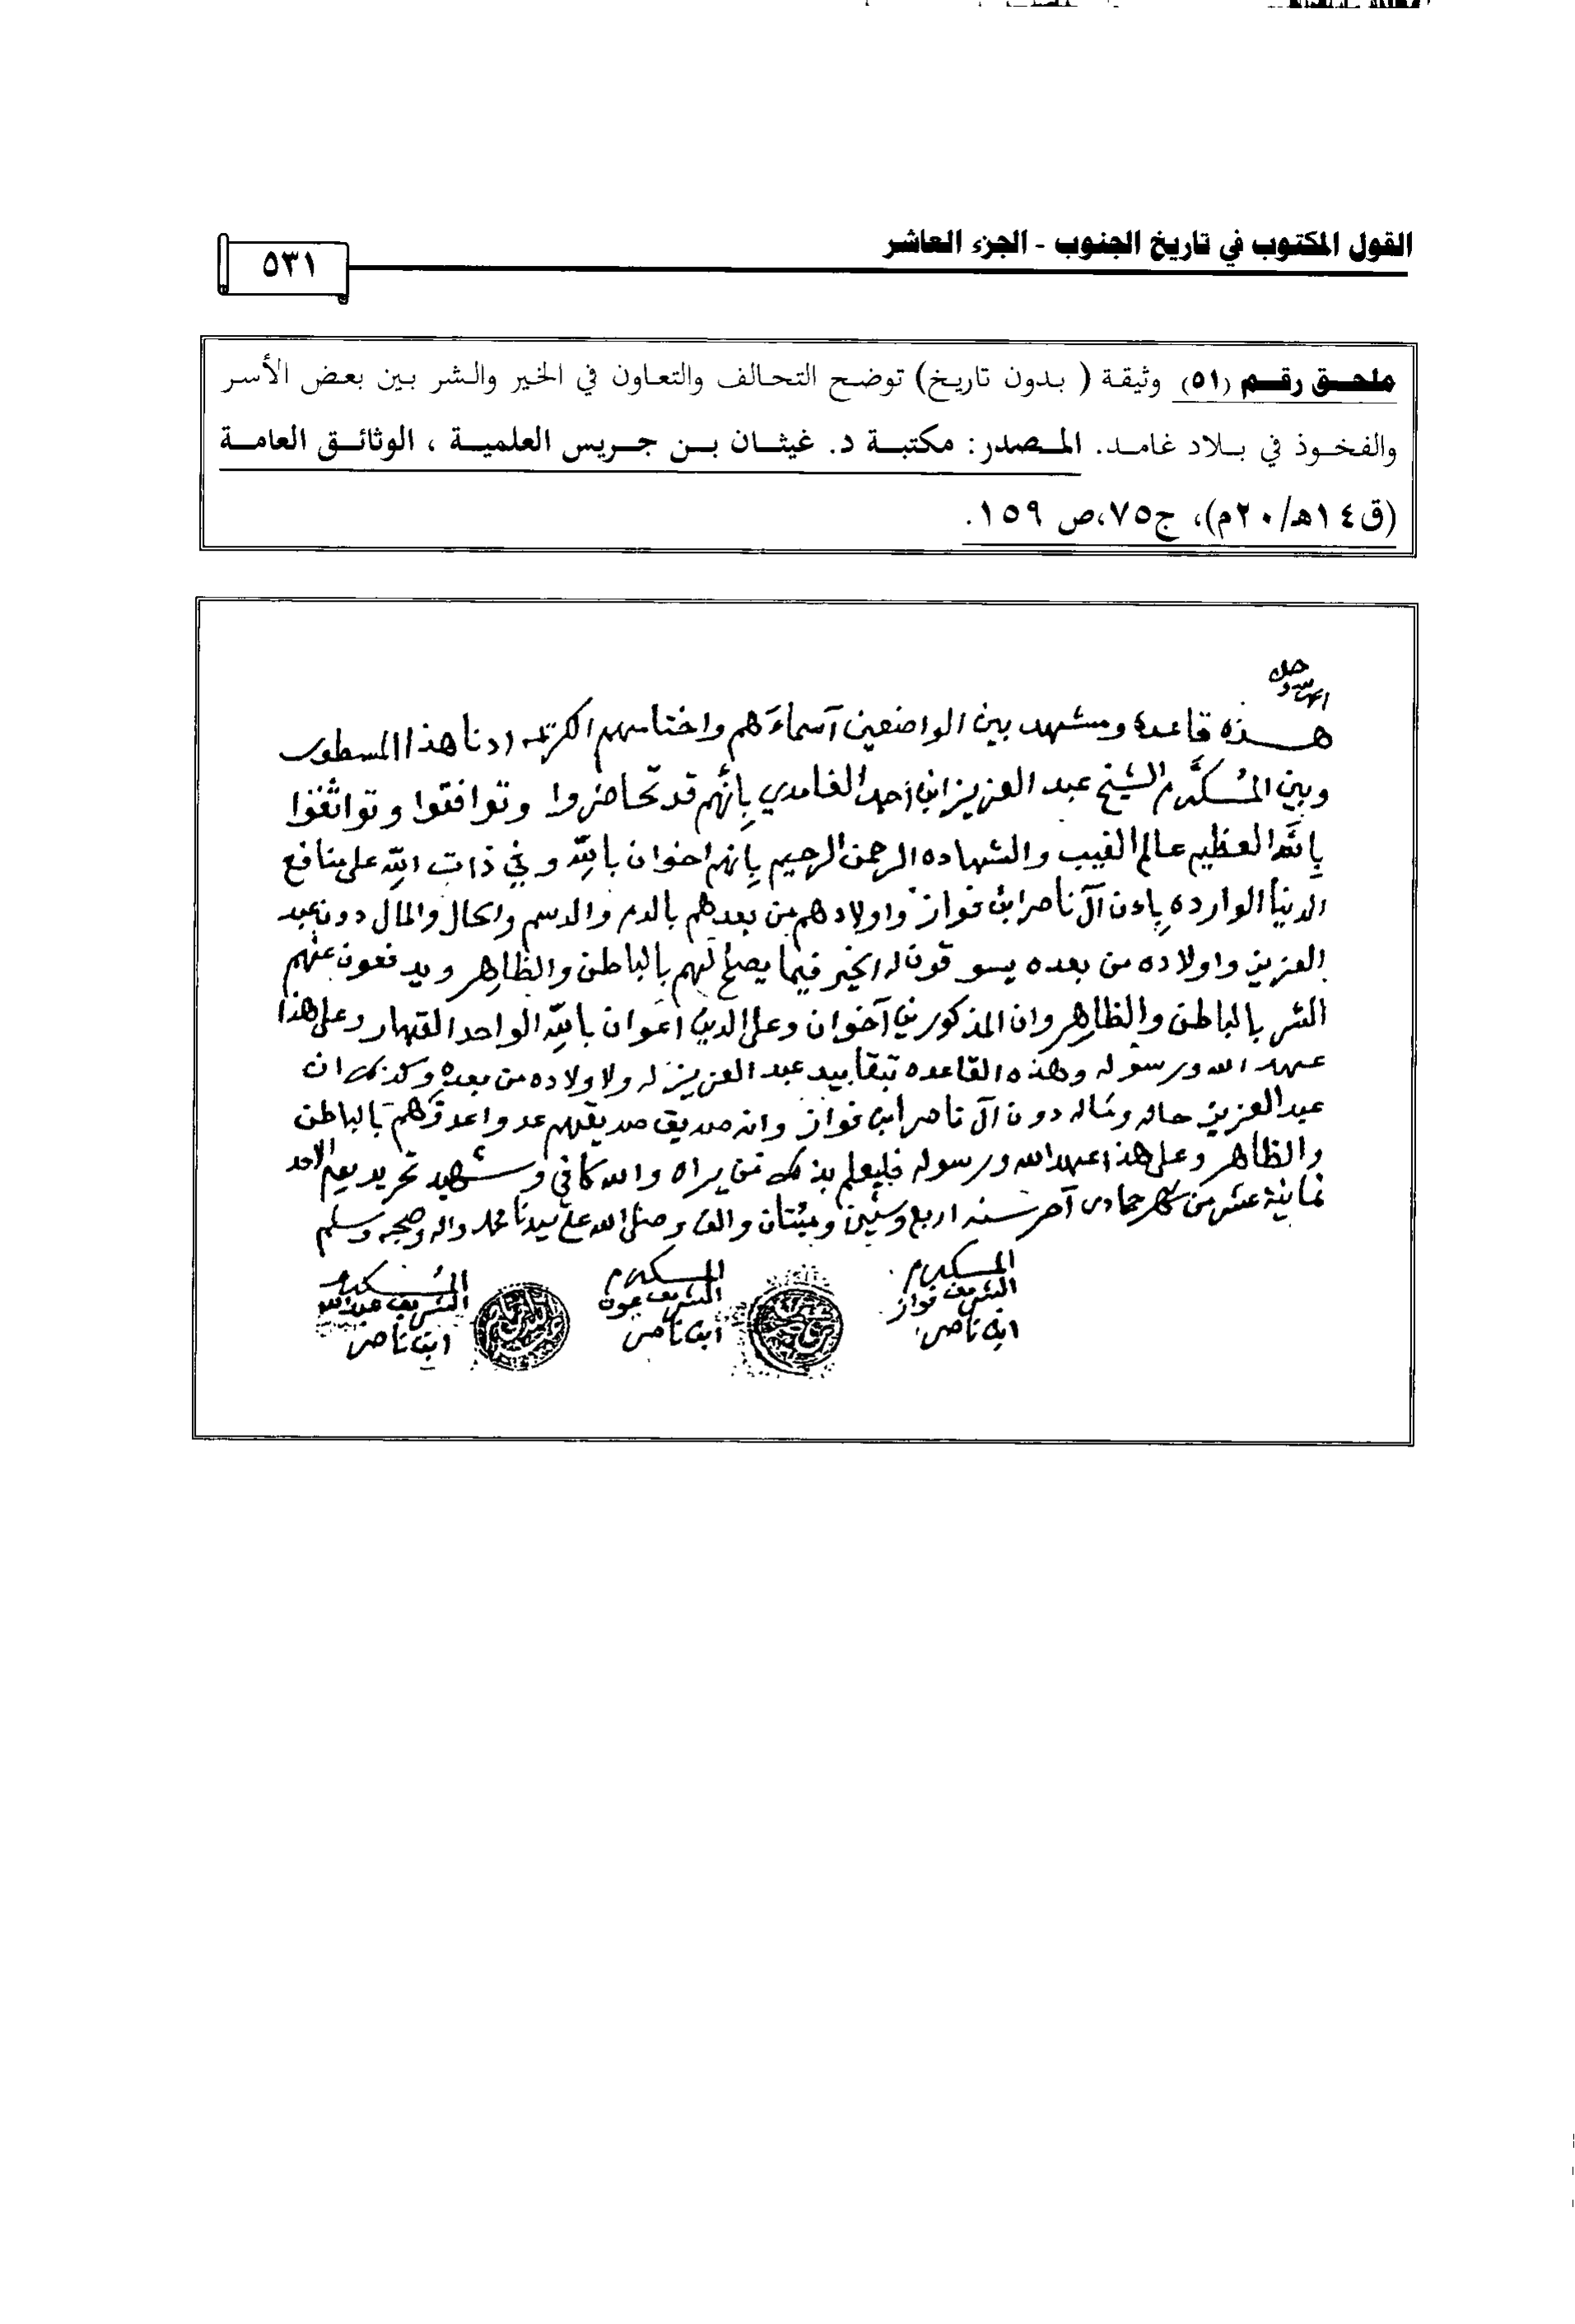 القول المكتوب في تاريخ الجنوب - الجزء العاشر
٥٣١
ملحق رقم (٥١) وثيقة ( بدون تاريخ) توضح التحالف والتعاون في الخير والشر بين بعض الأسر
والفخوذ في بلاد غامد. المصدر: مكتبة د. غيثان بن جريس العلمية ، الوثائق العامة
(ق١٤هـ/٢٠م)، ج٧٥،ص ١٥٩.
هذه قاعدة ومشهد بين الواضعين آسماءَهم واختامهم الكريمه ادنا هذا المسطور
وبين المُكَرم الشيخ عبد العزيز ابن احمد الغامدي بِأنَّهم قد تحاضروا وتوافقوا وتواثقوا
بِالله العظيم عالم الغيب والشهاده الرحمن الرحيم بِانهم اخوان بالله وفي ذات الله على منافع
الدنيا الوارده بِاءن آل ناصر ابن فواز واولادهم من بعدهم بالدم والدسم والحال والمال دون عبد
العزيز واولاده من بعده يسوقون له الخير فيما يصلح لهم بالباطن والظاهر ويدفعون عنهم
الشر بالباطن والظاهر وان المذكورين آخوان وعلى الدين اعوان بالله الواحد القهار وعلى هذا
عهد الله ورسوله وهذه القاعده تبقا بيد عبد العزيز له ولاولاده من بعده وكذلك ان
عبد العزيز حاله وماله دون آل ناصر ابن فواز وانه صديق صديقهم عدو اعدوهم بالباطن
والظاهر وعلى هذا عهد الله ورسوله فليعلم بذلك من يراه والله كافي وشهيد تحرير يوم الاحد
ثمانية عشر من شهر جمادى آخر سنه اربع وستين وميئتان والف وصلى الله على سيدنا محمد واله وصحبه وسلم
المكرم المكرم المكرم
الشريف فواز الشريف عون الشريف عبدالله
ابن ناصر ابن ناصر ابن ناصر